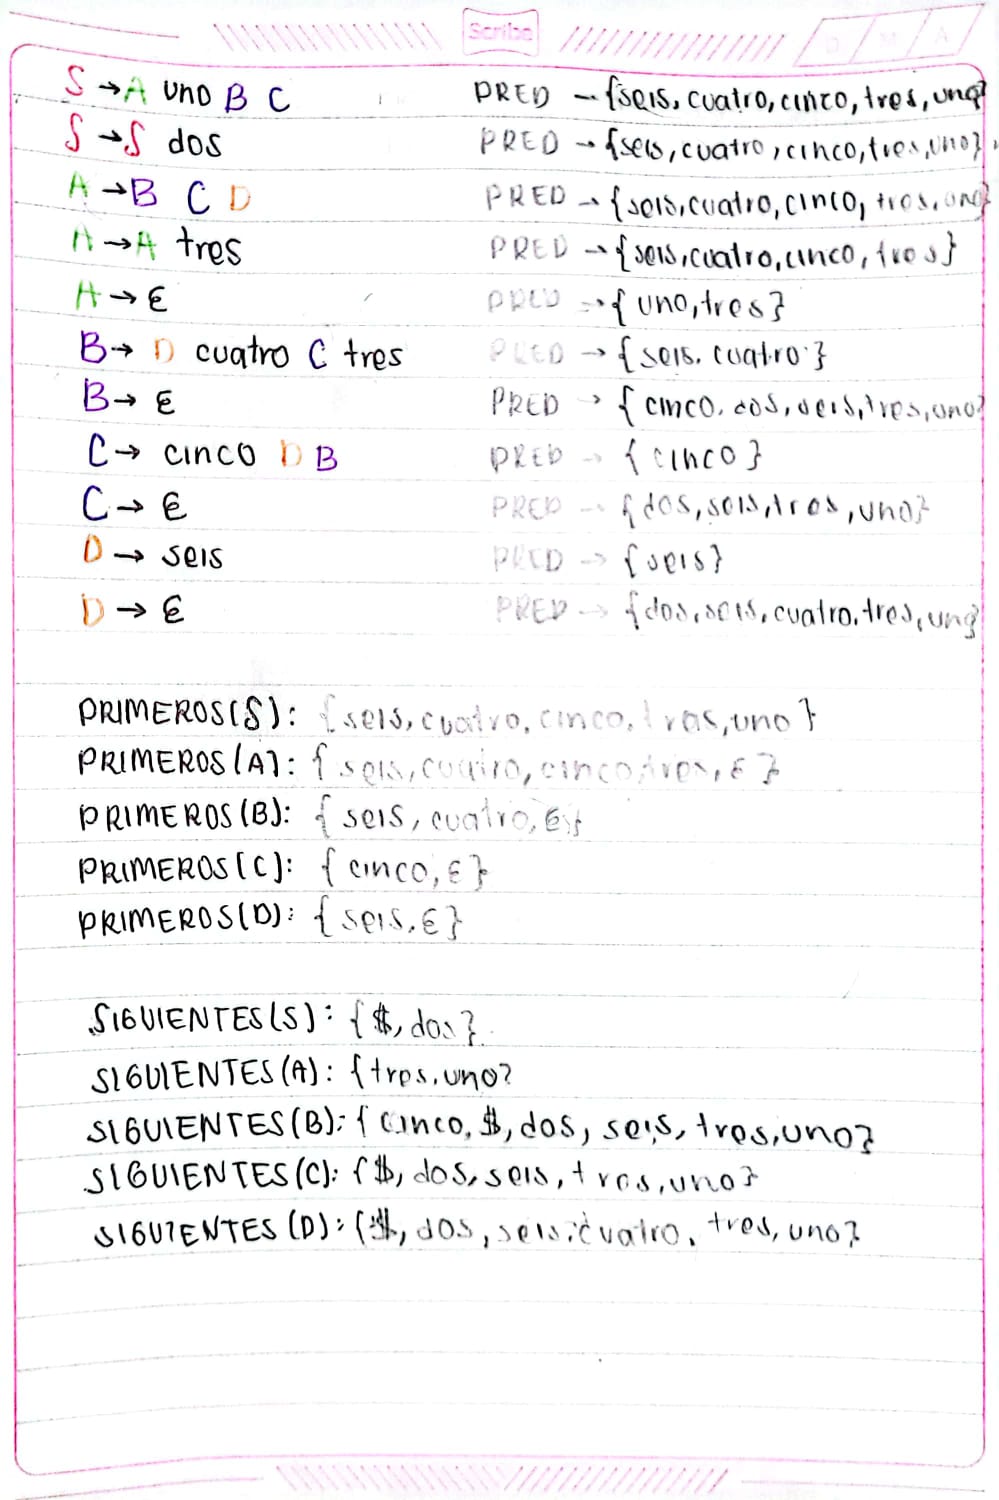 Scribe
D M A
S → A uno B C PRED → {seis, cuatro, cinco, tres, uno}
S → S dos PRED → {seis, cuatro, cinco, tres, uno}
A → B C D PRED → {seis, cuatro, cinco, tres, uno}
A → A tres PRED → {seis, cuatro, cinco, tres}
A → ε PRED → {uno, tres}
B → D cuatro C tres PRED → {seis, cuatro}
B → ε PRED → {cinco, dos, seis, tres, uno}
C → cinco D B PRED → {cinco}
C → ε PRED → {dos, seis, tres, uno}
D → seis PRED → {seis}
D → ε PRED → {dos, seis, cuatro, tres, uno}
PRIMEROS(S): {seis, cuatro, cinco, tres, uno}
PRIMEROS(A): {seis, cuatro, cinco, tres, ε}
PRIMEROS(B): {seis, cuatro, ε}
PRIMEROS(C): {cinco, ε}
PRIMEROS(D): {seis, ε}
SIGUIENTES(S): {$, dos}
SIGUIENTES(A): {tres, uno}
SIGUIENTES(B): {cinco, $, dos, seis, tres, uno}
SIGUIENTES(C): {$, dos, seis, tres, uno}
SIGUIENTES(D): {$, dos, seis, cuatro, tres, uno}